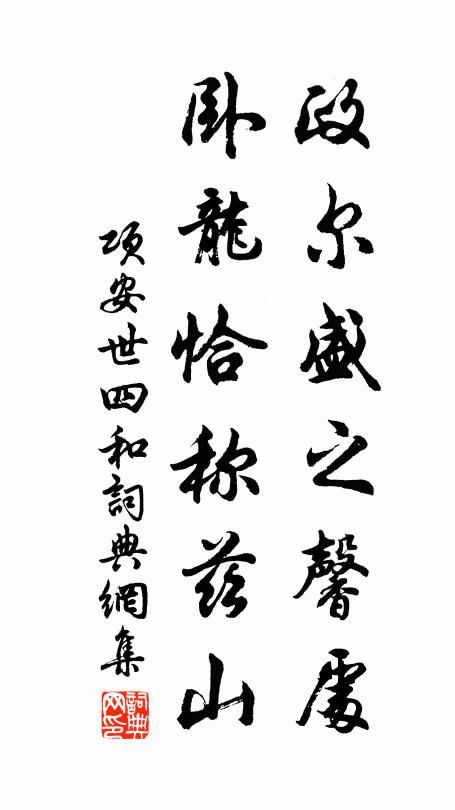 政尔盛之馨處
卧龍恰称茲山
項安世四和詞典網集
詞典網印